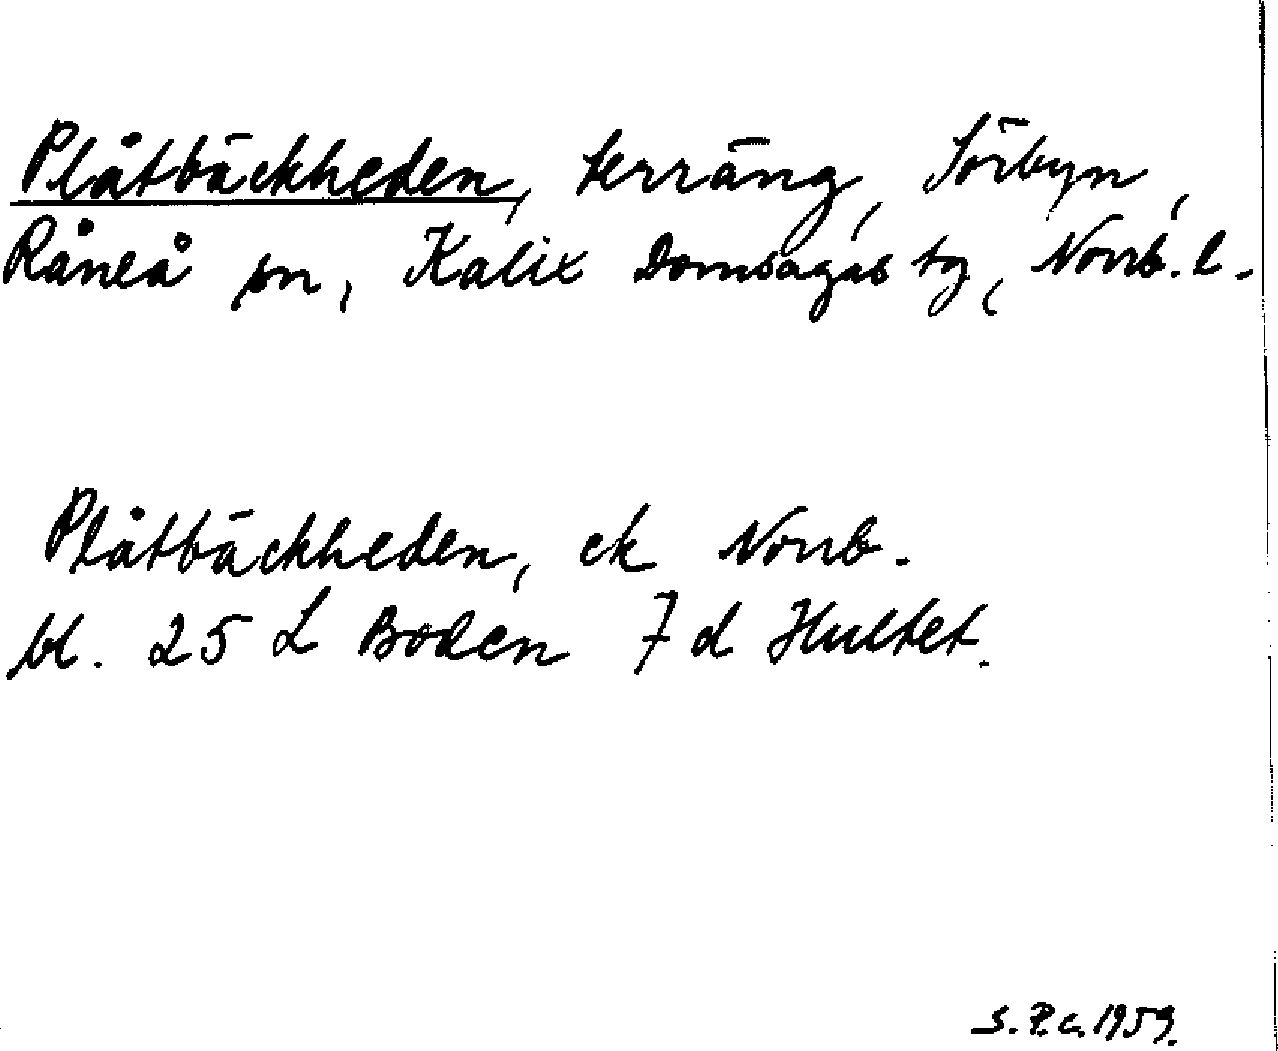 Plåtbäckheden, terräng, Sörbyn,
Råneå sn, Kalix Domsagas tg, Norrb. l.
Plåtbäckheden, ek Norrb.
bl. 25 L Boden 7 d Hultet.
S. P.c. 1959.